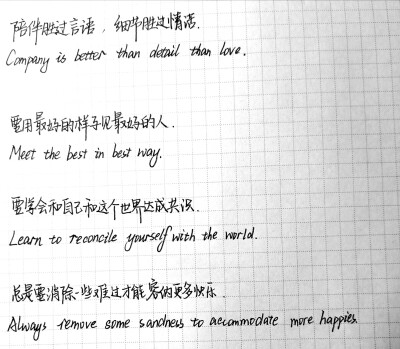 陪伴胜过言语，细节胜过情话.
Company is better than detail than love.
要用最好的样子见最好的人.
Meet the best in best way.
要学会和自己和这个世界达成共识.
Learn to reconcile yourself with the world.
总是要消除一些难过才能容的更多快乐.
Always remove some sandness to accommodate more happies.